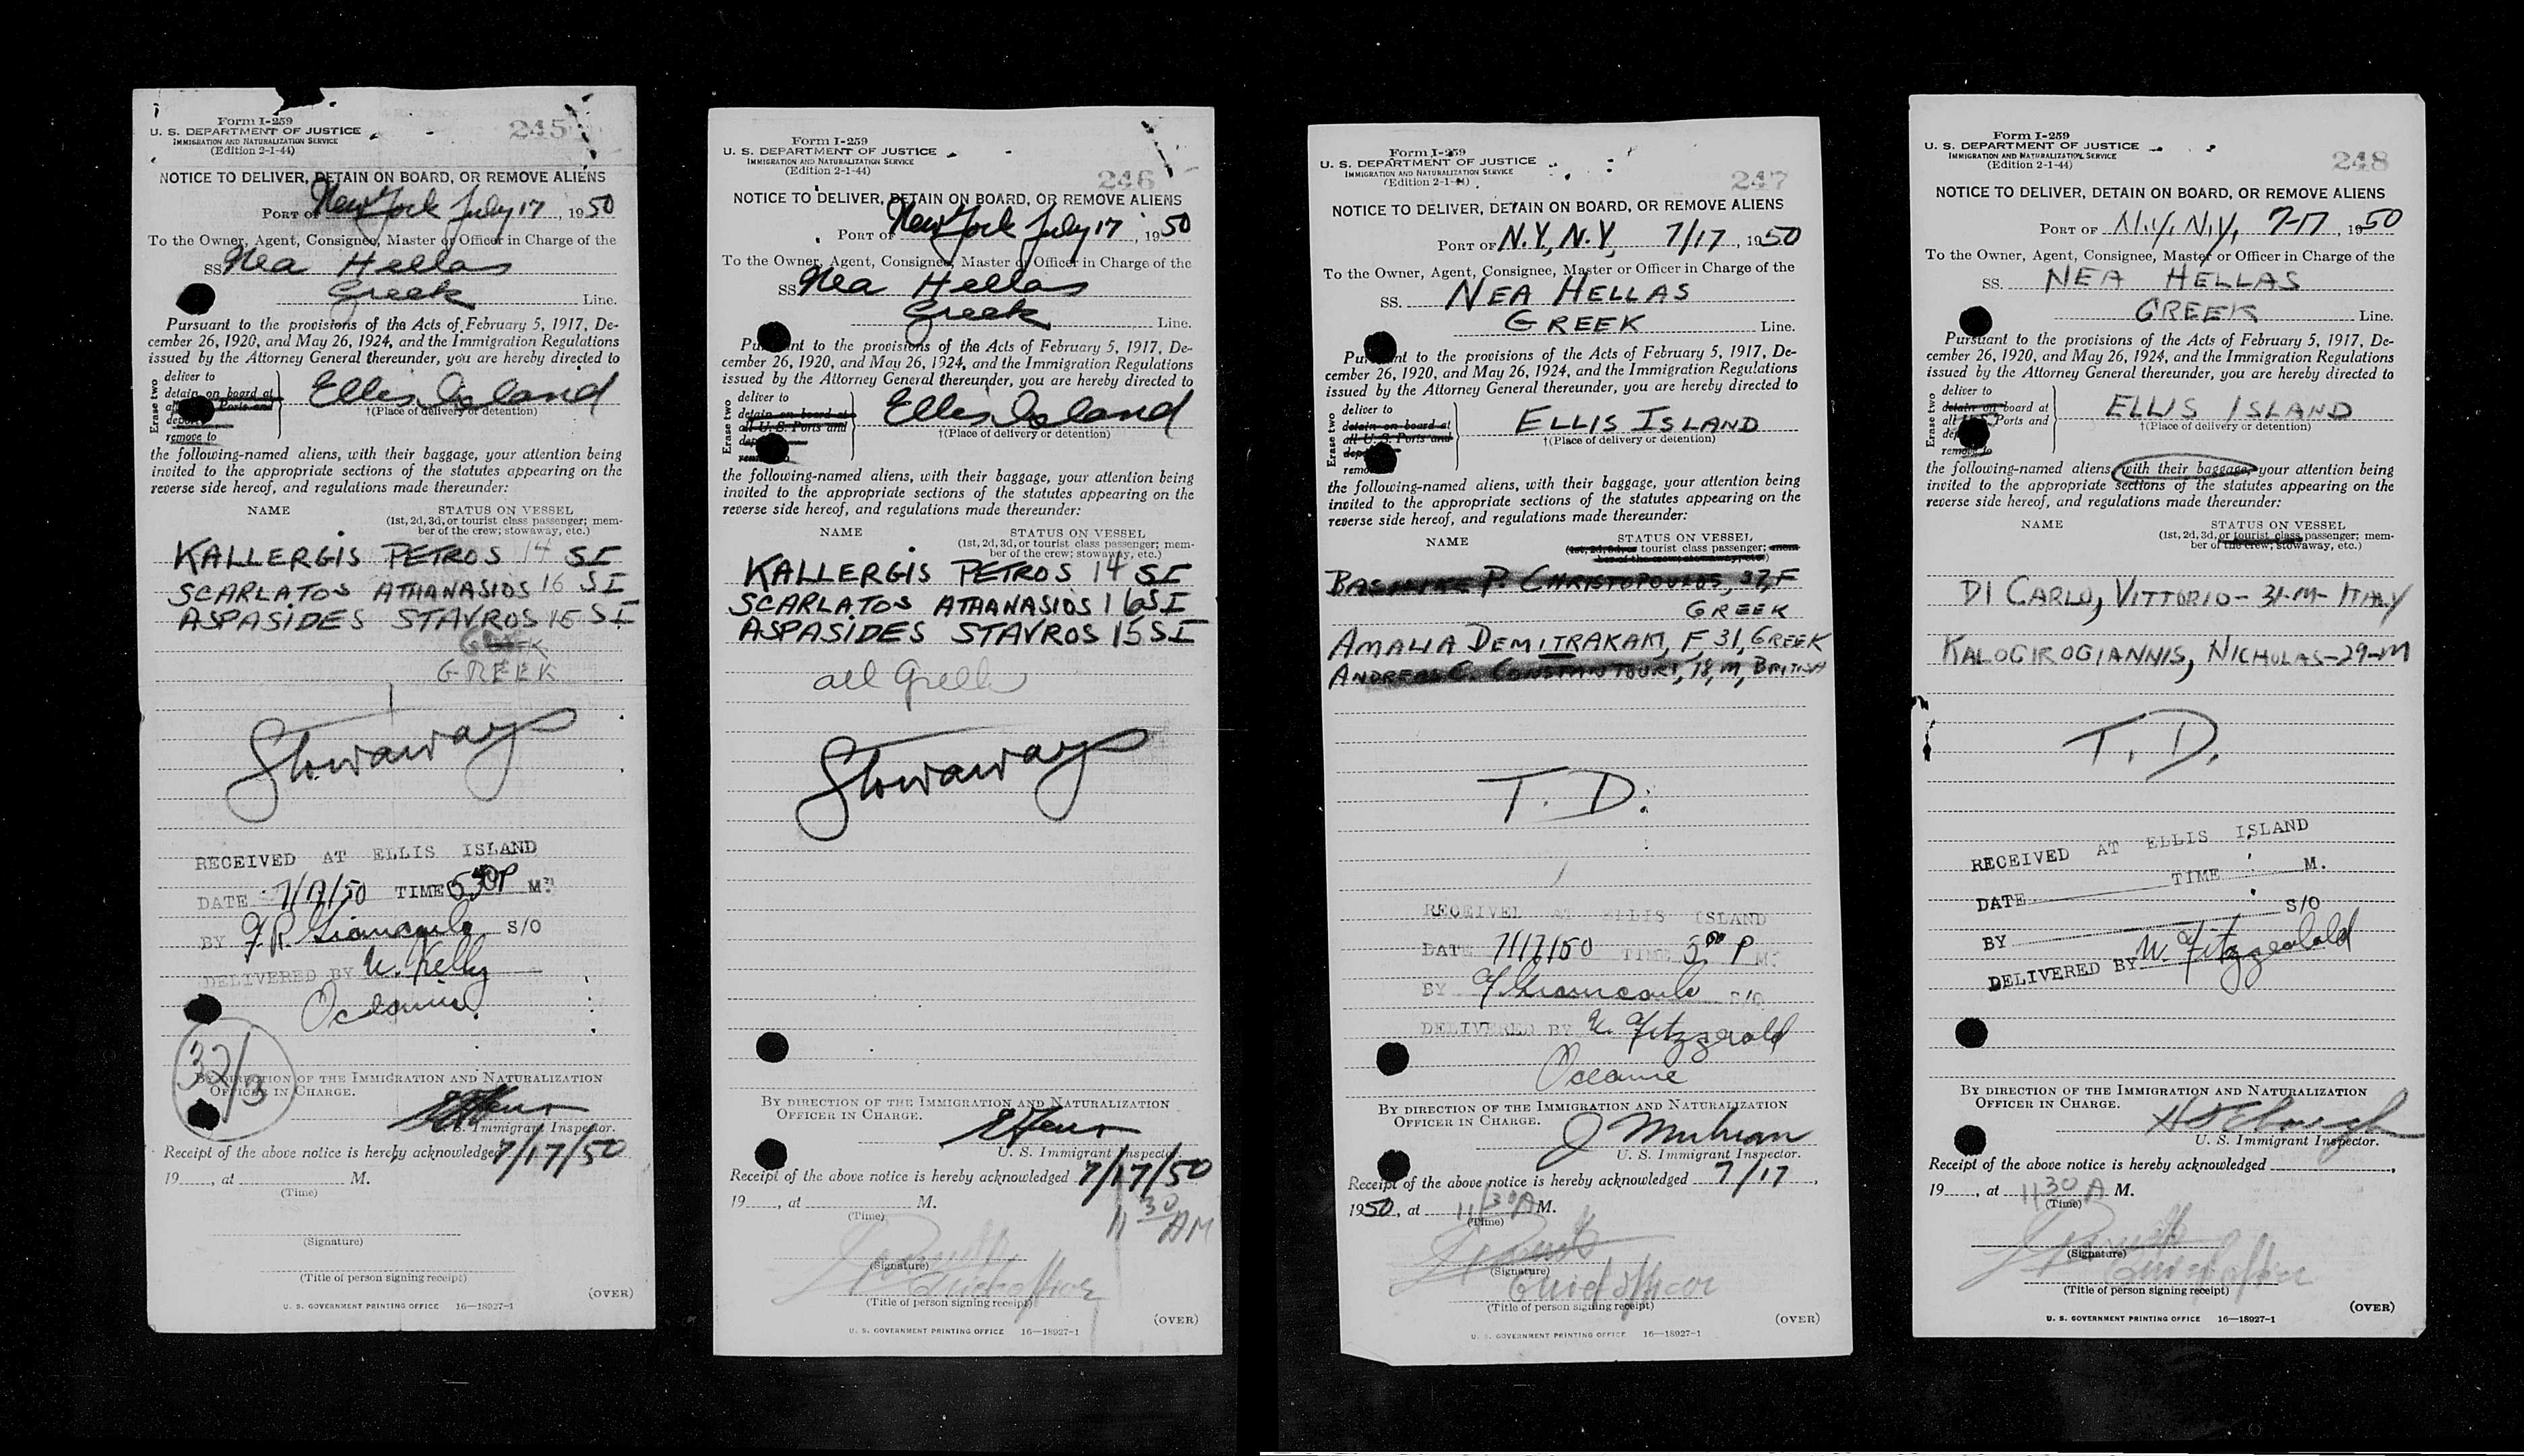 Form I-259
U. S. DEPARTMENT OF JUSTICE
IMMIGRATION AND NATURALIZATION SERVICE
(Edition 2-1-44)
245
NOTICE TO DELIVER, DETAIN ON BOARD, OR REMOVE ALIENS
PORT OF New York July 17, 1950
To the Owner, Agent, Consignee, Master or Officer in Charge of the
SS. Nea Hellas
Greek Line.
Pursuant to the provisions of the Acts of February 5, 1917, De-
cember 26, 1920, and May 26, 1924, and the Immigration Regulations
issued by the Attorney General thereunder, you are hereby directed to
Erase two
deliver to
detain on board at
all Ports and
remove to
Ellis Island
†(Place of delivery or detention)
the following-named aliens, with their baggage, your attention being
invited to the appropriate sections of the statutes appearing on the
reverse side hereof, and regulations made thereunder:
NAME STATUS ON VESSEL
(1st, 2d, 3d, or tourist class passenger; mem-
ber of the crew; stowaway, etc.)
KALLERGIS PETROS 14 SI
SCARLATOS ATHANASIOS 16 SI
ASPASIDES STAVROS 15 SI
GREEK
Stowaways
RECEIVED AT ELLIS ISLAND
DATE 7/17/50 TIME 5 30 P M.
BY F.R. Giancarlo S/O
DELIVERED BY W. Kelly
Oceanic
32/3
BY DIRECTION OF THE IMMIGRATION AND NATURALIZATION
OFFICER IN CHARGE.
U. S. Immigrant Inspector.
Receipt of the above notice is hereby acknowledged 7/17/50
19____, at ________ M.
(Time)
(Signature)
(Title of person signing receipt)
(OVER)
U. S. GOVERNMENT PRINTING OFFICE 16—18927-1
Form I-259
U. S. DEPARTMENT OF JUSTICE
IMMIGRATION AND NATURALIZATION SERVICE
(Edition 2-1-44)
246
NOTICE TO DELIVER, DETAIN ON BOARD, OR REMOVE ALIENS
PORT OF New York July 17, 1950
To the Owner, Agent, Consignee, Master or Officer in Charge of the
SS. Nea Hellas
Greek Line.
Pursuant to the provisions of the Acts of February 5, 1917, De-
cember 26, 1920, and May 26, 1924, and the Immigration Regulations
issued by the Attorney General thereunder, you are hereby directed to
Erase two
deliver to
detain on board at
all U. S. Ports and
Ellis Island
†(Place of delivery or detention)
the following-named aliens, with their baggage, your attention being
invited to the appropriate sections of the statutes appearing on the
reverse side hereof, and regulations made thereunder:
NAME STATUS ON VESSEL
(1st, 2d, 3d, or tourist class passenger; mem-
ber of the crew; stowaway, etc.)
KALLERGIS PETROS 14 SI
SCARLATOS ATHANASIOS 16 SI
ASPASIDES STAVROS 15 SI
all Greek
Stowaways
BY DIRECTION OF THE IMMIGRATION AND NATURALIZATION
OFFICER IN CHARGE.
U. S. Immigrant Inspector.
Receipt of the above notice is hereby acknowledged 7/17/50
19____, at ________ M.
11 30 AM
(Time)
(Signature)
Chief officer
(Title of person signing receipt)
(OVER)
U. S. GOVERNMENT PRINTING OFFICE 16—18927-1
Form I-259
U. S. DEPARTMENT OF JUSTICE
IMMIGRATION AND NATURALIZATION SERVICE
(Edition 2-1-44)
247
NOTICE TO DELIVER, DETAIN ON BOARD, OR REMOVE ALIENS
PORT OF N.Y., N.Y. 7/17, 1950
To the Owner, Agent, Consignee, Master or Officer in Charge of the
SS. NEA HELLAS
GREEK Line.
Pursuant to the provisions of the Acts of February 5, 1917, De-
cember 26, 1920, and May 26, 1924, and the Immigration Regulations
issued by the Attorney General thereunder, you are hereby directed to
Erase two
deliver to
detain on board at
all U. S. Ports and
ELLIS ISLAND
†(Place of delivery or detention)
the following-named aliens, with their baggage, your attention being
invited to the appropriate sections of the statutes appearing on the
reverse side hereof, and regulations made thereunder:
NAME STATUS ON VESSEL
(1st, 2d, 3d, or tourist class passenger; mem-
ber of the crew; stowaway, etc.)
P. CHRISTOPOULOS, 37, F
GREEK
AMALIA DEMITRAKAKI, F, 31, GREEK
ANDREAS C. CONSTANTOURI, 18, M, BRITISH
T. D.
RECEIVED AT ELLIS ISLAND
DATE 7/17/50 TIME 5 00 P M.
BY F Giancarlo S/O
DELIVERED BY W. Fitzgerald
Oceanic
BY DIRECTION OF THE IMMIGRATION AND NATURALIZATION
OFFICER IN CHARGE.
U. S. Immigrant Inspector.
Receipt of the above notice is hereby acknowledged 7/17,
1950, at 11/30 A M.
(Time)
(Signature)
Chief officer
(Title of person signing receipt)
(OVER)
U. S. GOVERNMENT PRINTING OFFICE 16—18927-1
Form I-259
U. S. DEPARTMENT OF JUSTICE
IMMIGRATION AND NATURALIZATION SERVICE
(Edition 2-1-44)
248
NOTICE TO DELIVER, DETAIN ON BOARD, OR REMOVE ALIENS
PORT OF N.Y., N.Y., 7-17, 1950
To the Owner, Agent, Consignee, Master or Officer in Charge of the
SS. NEA HELLAS
GREEK Line.
Pursuant to the provisions of the Acts of February 5, 1917, De-
cember 26, 1920, and May 26, 1924, and the Immigration Regulations
issued by the Attorney General thereunder, you are hereby directed to
Erase two
deliver to
detain on board at
all U. S. Ports and
remove to
ELLIS ISLAND
†(Place of delivery or detention)
the following-named aliens, with their baggage, your attention being
invited to the appropriate sections of the statutes appearing on the
reverse side hereof, and regulations made thereunder:
NAME STATUS ON VESSEL
(1st, 2d, 3d, or tourist class passenger; mem-
ber of the crew; stowaway, etc.)
DI CARLO, VITTORIO - 31-M- ITALY
KALOGIROGIANNIS, NICHOLAS-29-M
T. D.
RECEIVED AT ELLIS ISLAND
DATE ________ TIME ________ M.
BY ________ S/O
DELIVERED BY W. Fitzgerald
BY DIRECTION OF THE IMMIGRATION AND NATURALIZATION
OFFICER IN CHARGE.
U. S. Immigrant Inspector.
Receipt of the above notice is hereby acknowledged ________,
19____, at 11 30 A M.
(Time)
(Signature)
Chief officer
(Title of person signing receipt)
(OVER)
U. S. GOVERNMENT PRINTING OFFICE 16—18927-1